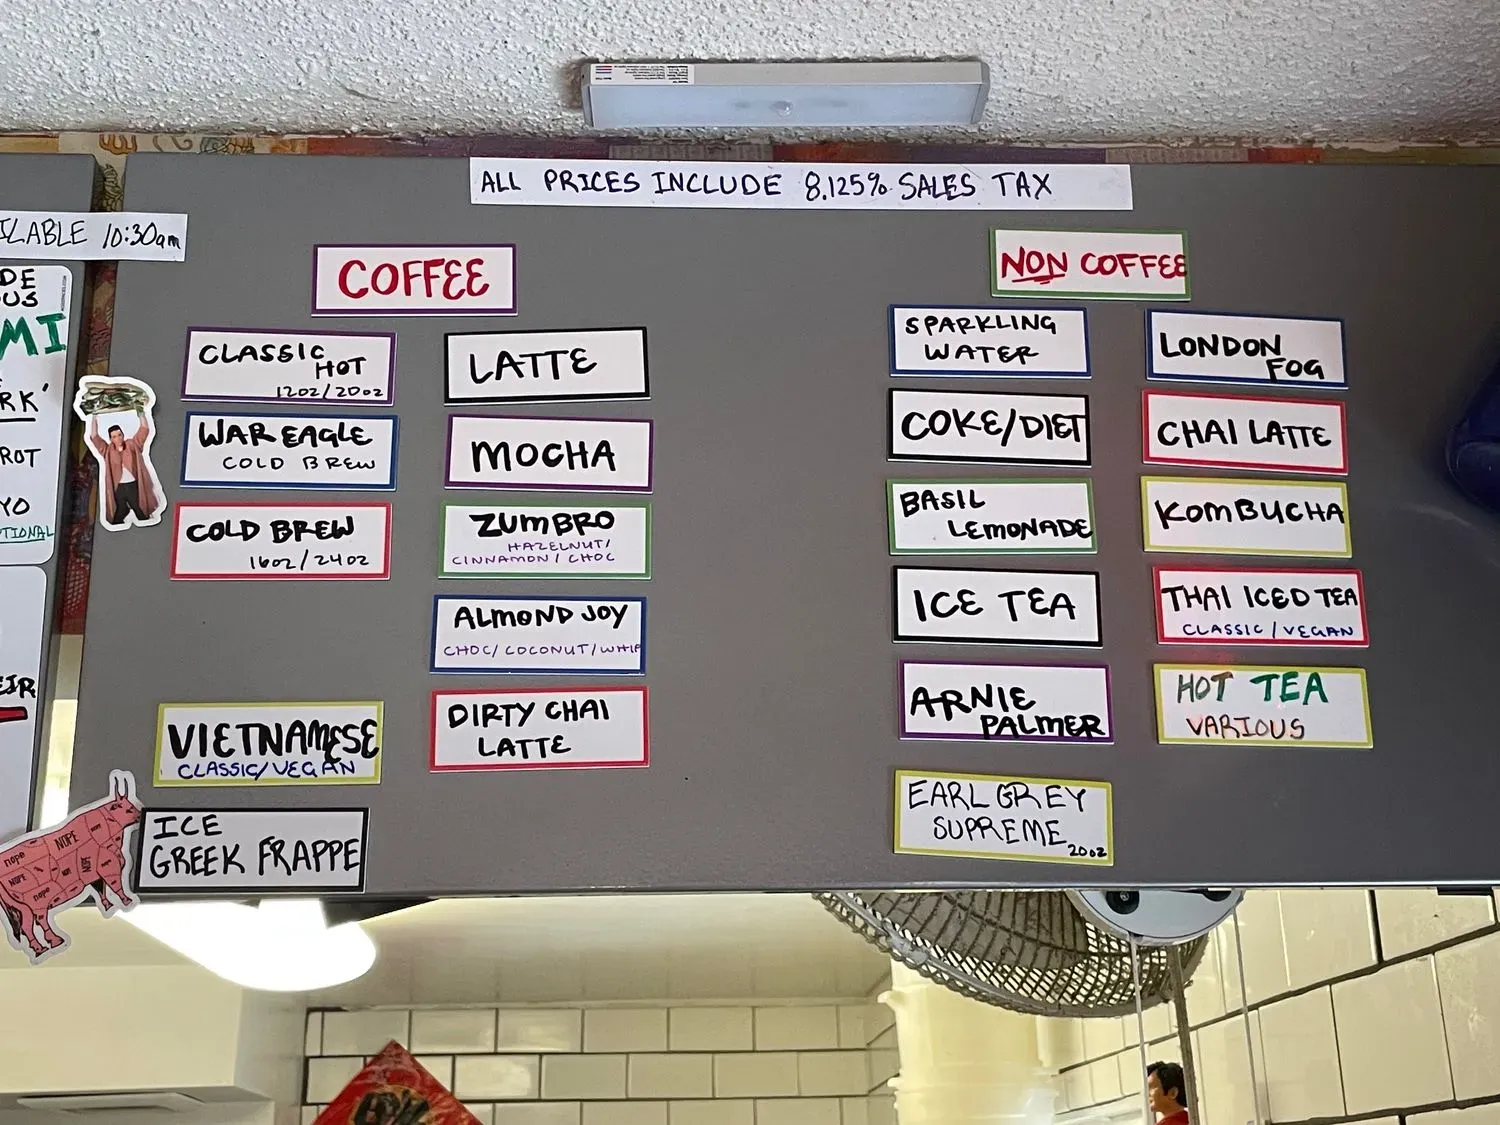 ALL PRICES INCLUDE 8.125% SALES TAX
ILABLE 10:30am
DE
OUS
MI
RK'
ROT
YO
TIONAL
EIR
COFFEE
CLASSIC
HOT
12oz/20oz
WAR EAGLE
COLD BREW
COLD BREW
16oz/24oz
VIETNAMESE
CLASSIC/VEGAN
ICE
GREEK FRAPPE
LATTE
MOCHA
ZUMBRO
HAZELNUT/
CINNAMON/CHOC
ALMOND JOY
CHOC/COCONUT/WHIP
DIRTY CHAI
LATTE
NON COFFEE
SPARKLING
WATER
COKE/DIET
BASIL
LEMONADE
ICE TEA
ARNIE
PALMER
EARL GREY
SUPREME
20oz
LONDON
FOG
CHAI LATTE
KOMBUCHA
THAI ICED TEA
CLASSIC/VEGAN
HOT TEA
VARIOUS
nope
NOPE
NOPE
NOT
nope